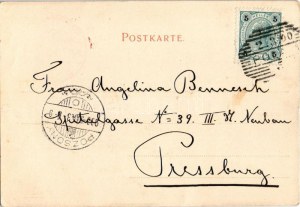 POSTKARTE
5 5
Frau Angelina Bennesch
Spitalgasse № 39. III. St. Neubau
POZSONY
Pressburg.